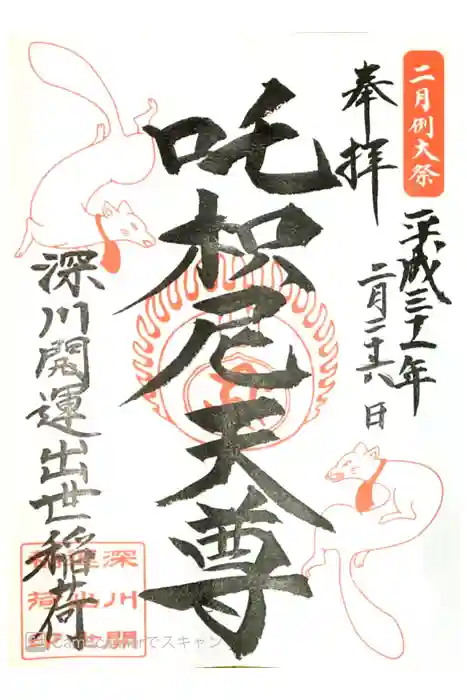 二月例大祭
奉拝
平成三十一年
二月二十六日
吒枳尼天尊
深川開運出世稲荷
深川開
CamScannerでスキャン